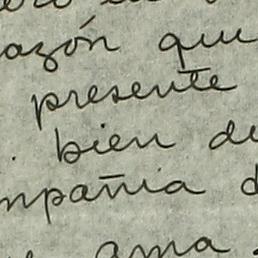 azón que
presente
bien de
mpañia d
ama